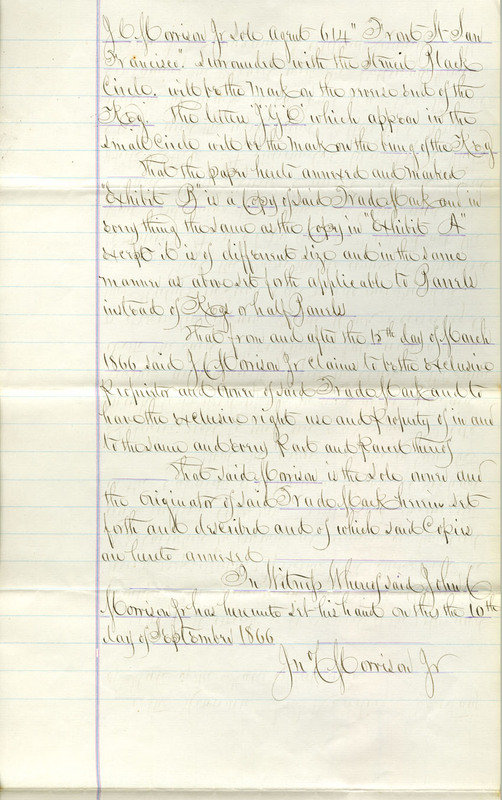 J C Morrison Jr Sole Agent 614 "Front St San
Francisco". Surrounded with the Struit Black
Circle, will be the Mark on the reverse end of the
Keg. The letters "J.G.C" which appear in the
small Circle will be the Mark on the bung of the Keg
That the paper hereto annexed and marked
"Exhibit B" is a Copy of said Trade Mark and in
every thing the same as the Copy in "Exhibit A"
except it is of different size and in the same
manner as above set forth applicable to Barrels
instead of Kegs or half Barrels
That from and after the 15th day of March
1866 said J C Morrison Jr claims to be the exclusive
Proprietor and owner of said Trade Mark and to
have the exclusive right use and Property of in and
to the same and every Part and Parcel thereof
That said Morrison is the Sole owner and
the Originator of said Trade Mark herein set
forth and described and of which said Copies
are hereto annexed
In Witness Whereof said John C
Morrison Jr has hereunto set his hand on this the 10th
day of September 1866
Jno C Morrison Jr